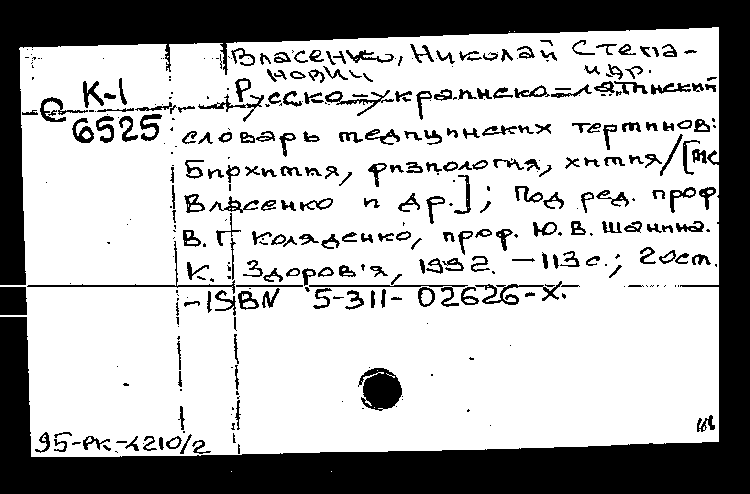 Власенко, Николай Степа-
нович и др.
К-1 Русско-украинско-латинский
С 6525
словарь медицинских терминов:
Биохимия, физиология, химия/[
Власенко и др.]; Под ред. проф.
В. Г. Коляденко, проф. Ю. В. Шанина.
К.: Здоров'я, 1992. -113с.; 20см.
-ISBN 5-311-02626-X.
95-РК-4210/2